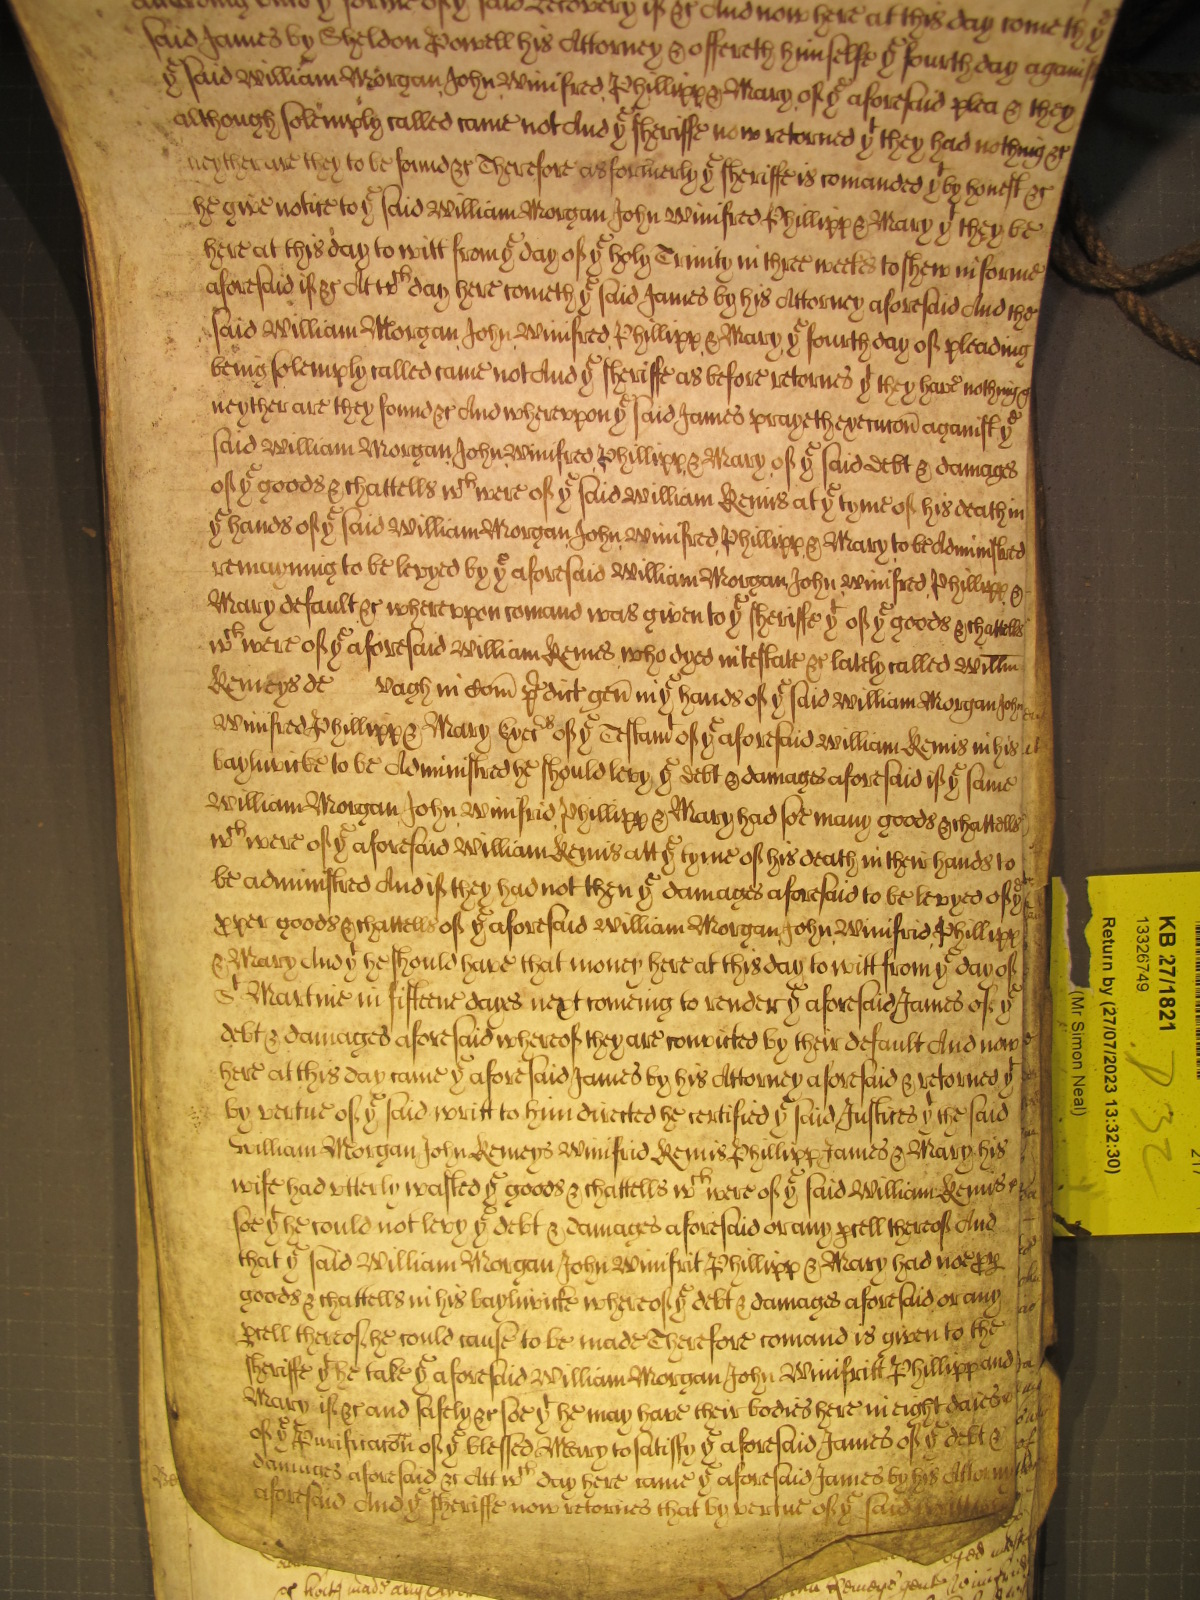 according unto yͤ forme of yͤ said Recovery if &c And now here at this day cometh yͤ
said James by Sheldon Powell his Attorney & offereth himselfe yͤ fourth day against
yͤ said William Morgan John Winifred Phillipp & Mary of yͤ aforesaid plea & they
although solemply called came not And yͤ sheriffe now retorned yͭ they had nothing &c
neyther are they to be found &c Therefore as formerly yͤ sheriffe is comanded yͭ by honest &c
he give notice to yͤ said William Morgan John Winifred Phillipp & Mary yͭ they be
here at this day to witt from yͤ day of yͤ holy Trinity in three weekes to shew in forme
aforesaid if &c At wͨʰ day here cometh yͤ said James by his Attorney aforesaid And the
said William Morgan John Winifred Phillipp & Mary yͤ fourth day of pleading
being solemply called came not And yͤ sheriffe as before retornes yͭ they have nothing
neyther are they found &c And wherevpon yͤ said James prayeth execucōn against yͤ
said William Morgan John Winifred Phillipp & Mary of yͤ said debt & damages
of yͤ goods & chattells wͨʰ were of yͤ said William Remis at yͤ tyme of his death in
yͤ hands of yͤ said William Morgan John Winifred Phillipp & Mary to be Administred
remayning to be levyed by yͤ aforesaid William Morgan John Winifred Phillipp &
Mary default &c wherevpon comand was given to yͤ sheriffe yͭ of yͤ goods & chattells
wͨʰ were of yͤ aforesaid William Remes who dyed intestate &c lately called Willm̄
Remeys de vagh in Com̄ p̱dict gen̄ in yͤ hands of yͤ said William Morgan John
Winifred Phillipp & Mary Exec̄ʳˢ of yͤ Testamͭ of yͤ aforesaid William Remis in his
bayliwicke to be Administred he should levy yͤ debt & damages aforesaid if yͤ same
William Morgan John Winifrid Phillipp & Mary had soe many goods & chattells
wͨʰ were of yͤ aforesaid William Remis att yͤ tyme of his death in their hands to
be administred And if they had not then yͤ damages aforesaid to be levyed of yͤ
p̱per goods & chattells of yͤ aforesaid William Morgan John Winifrid Phillipp
& Mary And yͭ he should have that money here at this day to witt from yͤ day of
Sͭ Martine in fifteene dayes next comeing to render yͤ aforesaid James of yͤ
debt & damages aforesaid whereof they are convicted by their default And now
here at this day came yͤ aforesaid James by his Attorney aforesaid & retorned yͭ
by vertue of yͤ said writt to him directed he certified yͤ said Justices yͭ the said
William Morgan John Remeys Winifrid Remis Phillipp James & Mary his
wife had vtterly wasted yͤ goods & chattells wͨʰ were of yͤ said William Remis
soe yͭ he could not levy yͤ debt & damages aforesaid or any p̱cell thereof And
that yͤ said William Morgan John Winifrit Phillipp & Mary had noe p̱p̱
goods & chattells in his bayliwicke whereof yͤ debt & damages aforesaid or any
p̱cell thereof he could cause to be made Therefore comand is given to the
sheriffe yͭ he take yͤ aforesaid William Morgan John Winifritt Phillipp and
Mary if &c and safely &c soe yͭ he may have their bodies here in eight daies
of yͤ Purificacōn of yͤ blessed Mary to satisfy yͤ aforesaid James of yͤ debt &
damages aforesaid &c Att wͨʰ day here came yͤ aforesaid James by his Attorny
aforesaid And yͤ sheriffe now retornes that by vertue of yͤ said
KB 27/1821
13326749
Return by (27/07/2023 13:32:30)
(Mr Simon Neal)
P 32